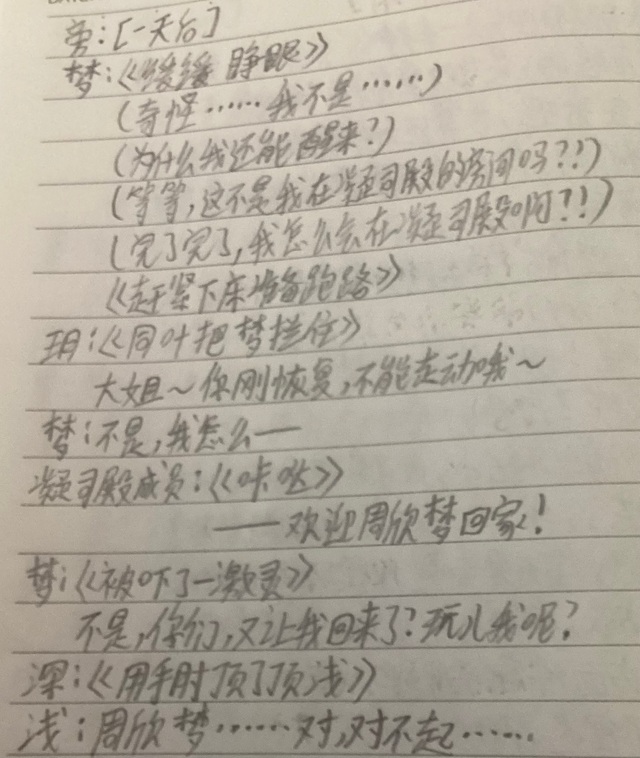 旁:[一天后]
梦:《缓缓睁眼》
(奇怪……我不是……)
(为什么我还能醒来?)
(等等,这不是我在凝司殿的房间吗?!)
(完了完了,我怎么会在凝司殿啊?!)
《赶紧下床准备跑路》
玥:《同叶把梦拦住》
大姐~你刚恢复,不能走动哦~
梦:不是,我怎么——
凝司殿成员:《咔哒》
——欢迎周欣梦回家!
梦:《被吓了一激灵》
不是,你们,又让我回来了?玩儿我呢?
深:《用手肘顶了顶浅》
浅:周欣梦……对,对不起……